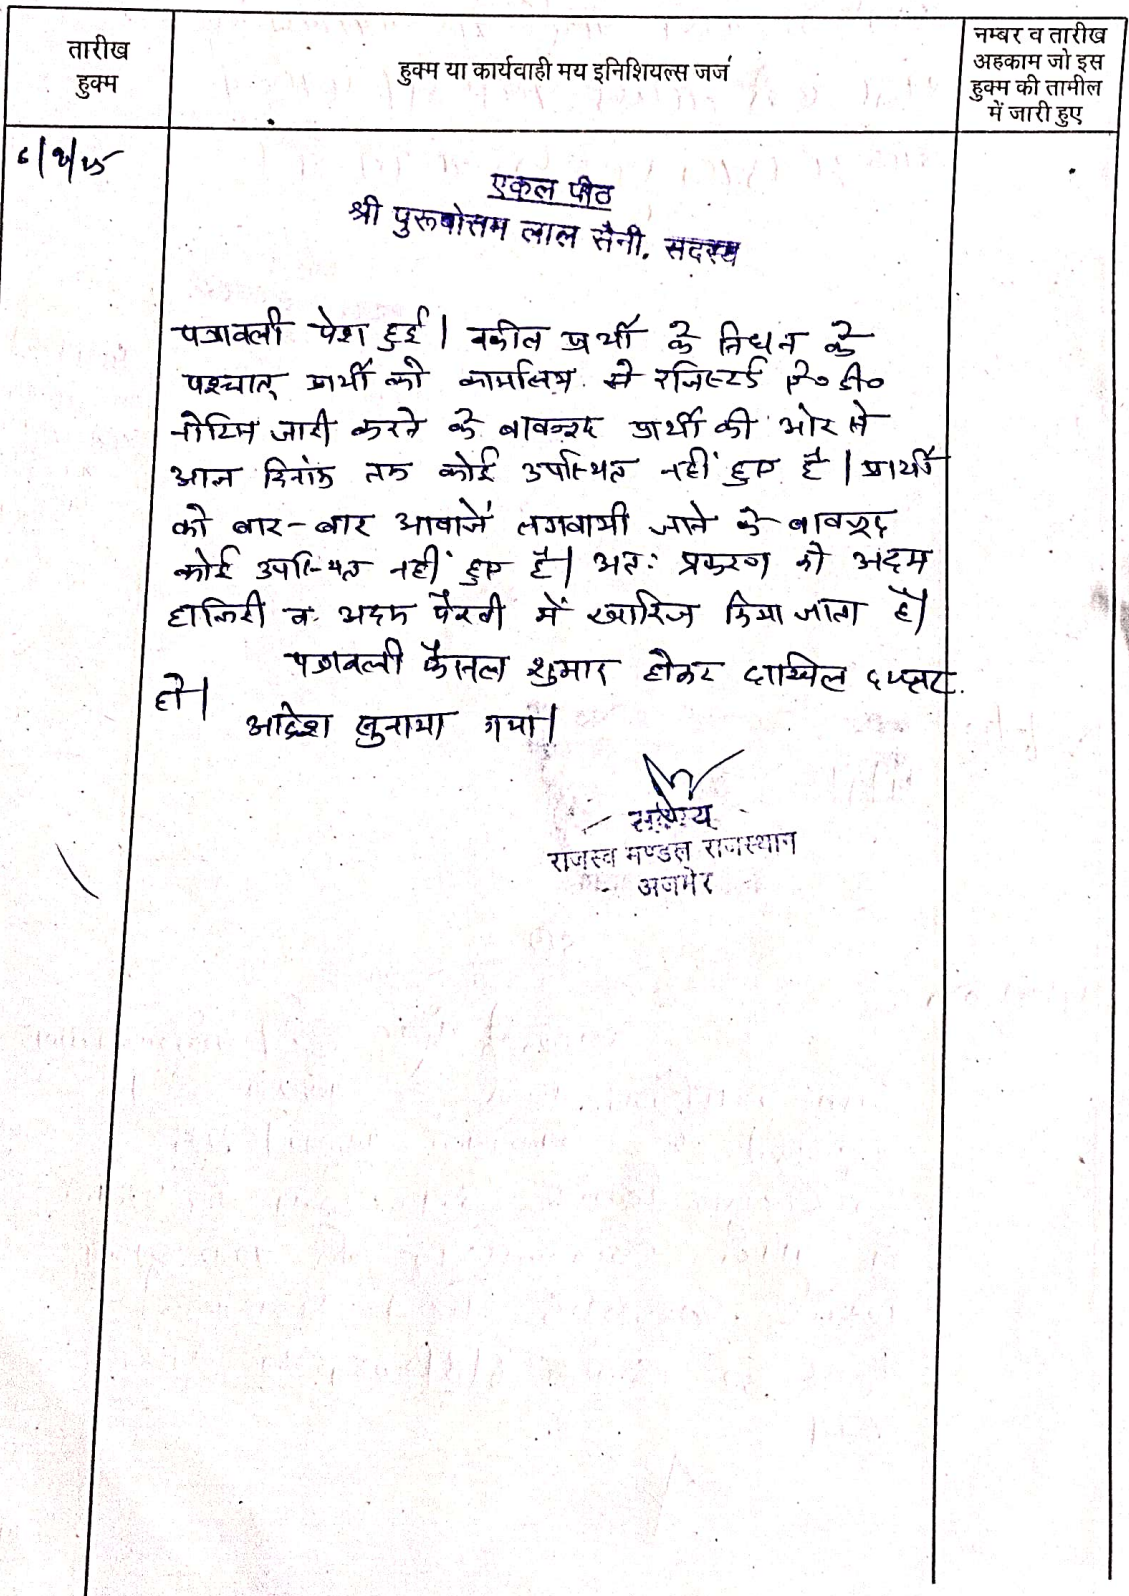 तारीख
हुक्म
हुक्म या कार्यवाही मय इनिशियल्स जज
नम्बर व तारीख
अहकाम जो इस
हुक्म की तामील
में जारी हुए
एकल पीठ
श्री पुरूषोत्तम लाल सैनी, सदस्य
पत्रावली पेश हुई। वकील प्रार्थी के निधन के
पश्चात् प्रार्थी को कार्यालय से रजिस्टर्ड ए० डी०
नोटिस जारी करने के बावजूद प्रार्थी की ओर से
आज दिनांक तक कोई उपस्थित नहीं हुए है। प्रार्थी
को बार-बार आवाजें लगवायी जाने के बावजूद
कोई उपस्थित नहीं हुए है। अतः प्रकरण को अदम
हाजिरी व अदम पैरवी में खारिज किया जाता है।
पत्रावली फैसल शुमार होकर दाखिल दफ्तर
हो।
आदेश सुनाया गया।
सदस्य
राजस्व मण्डल राजस्थान
अजमेर